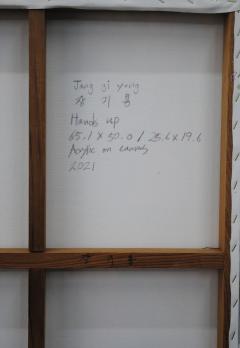 Jang gi yong
장 기 용
Hands up
65.1 x 50.0 / 25.6 x 19.6
Acrylic on canvas
2021